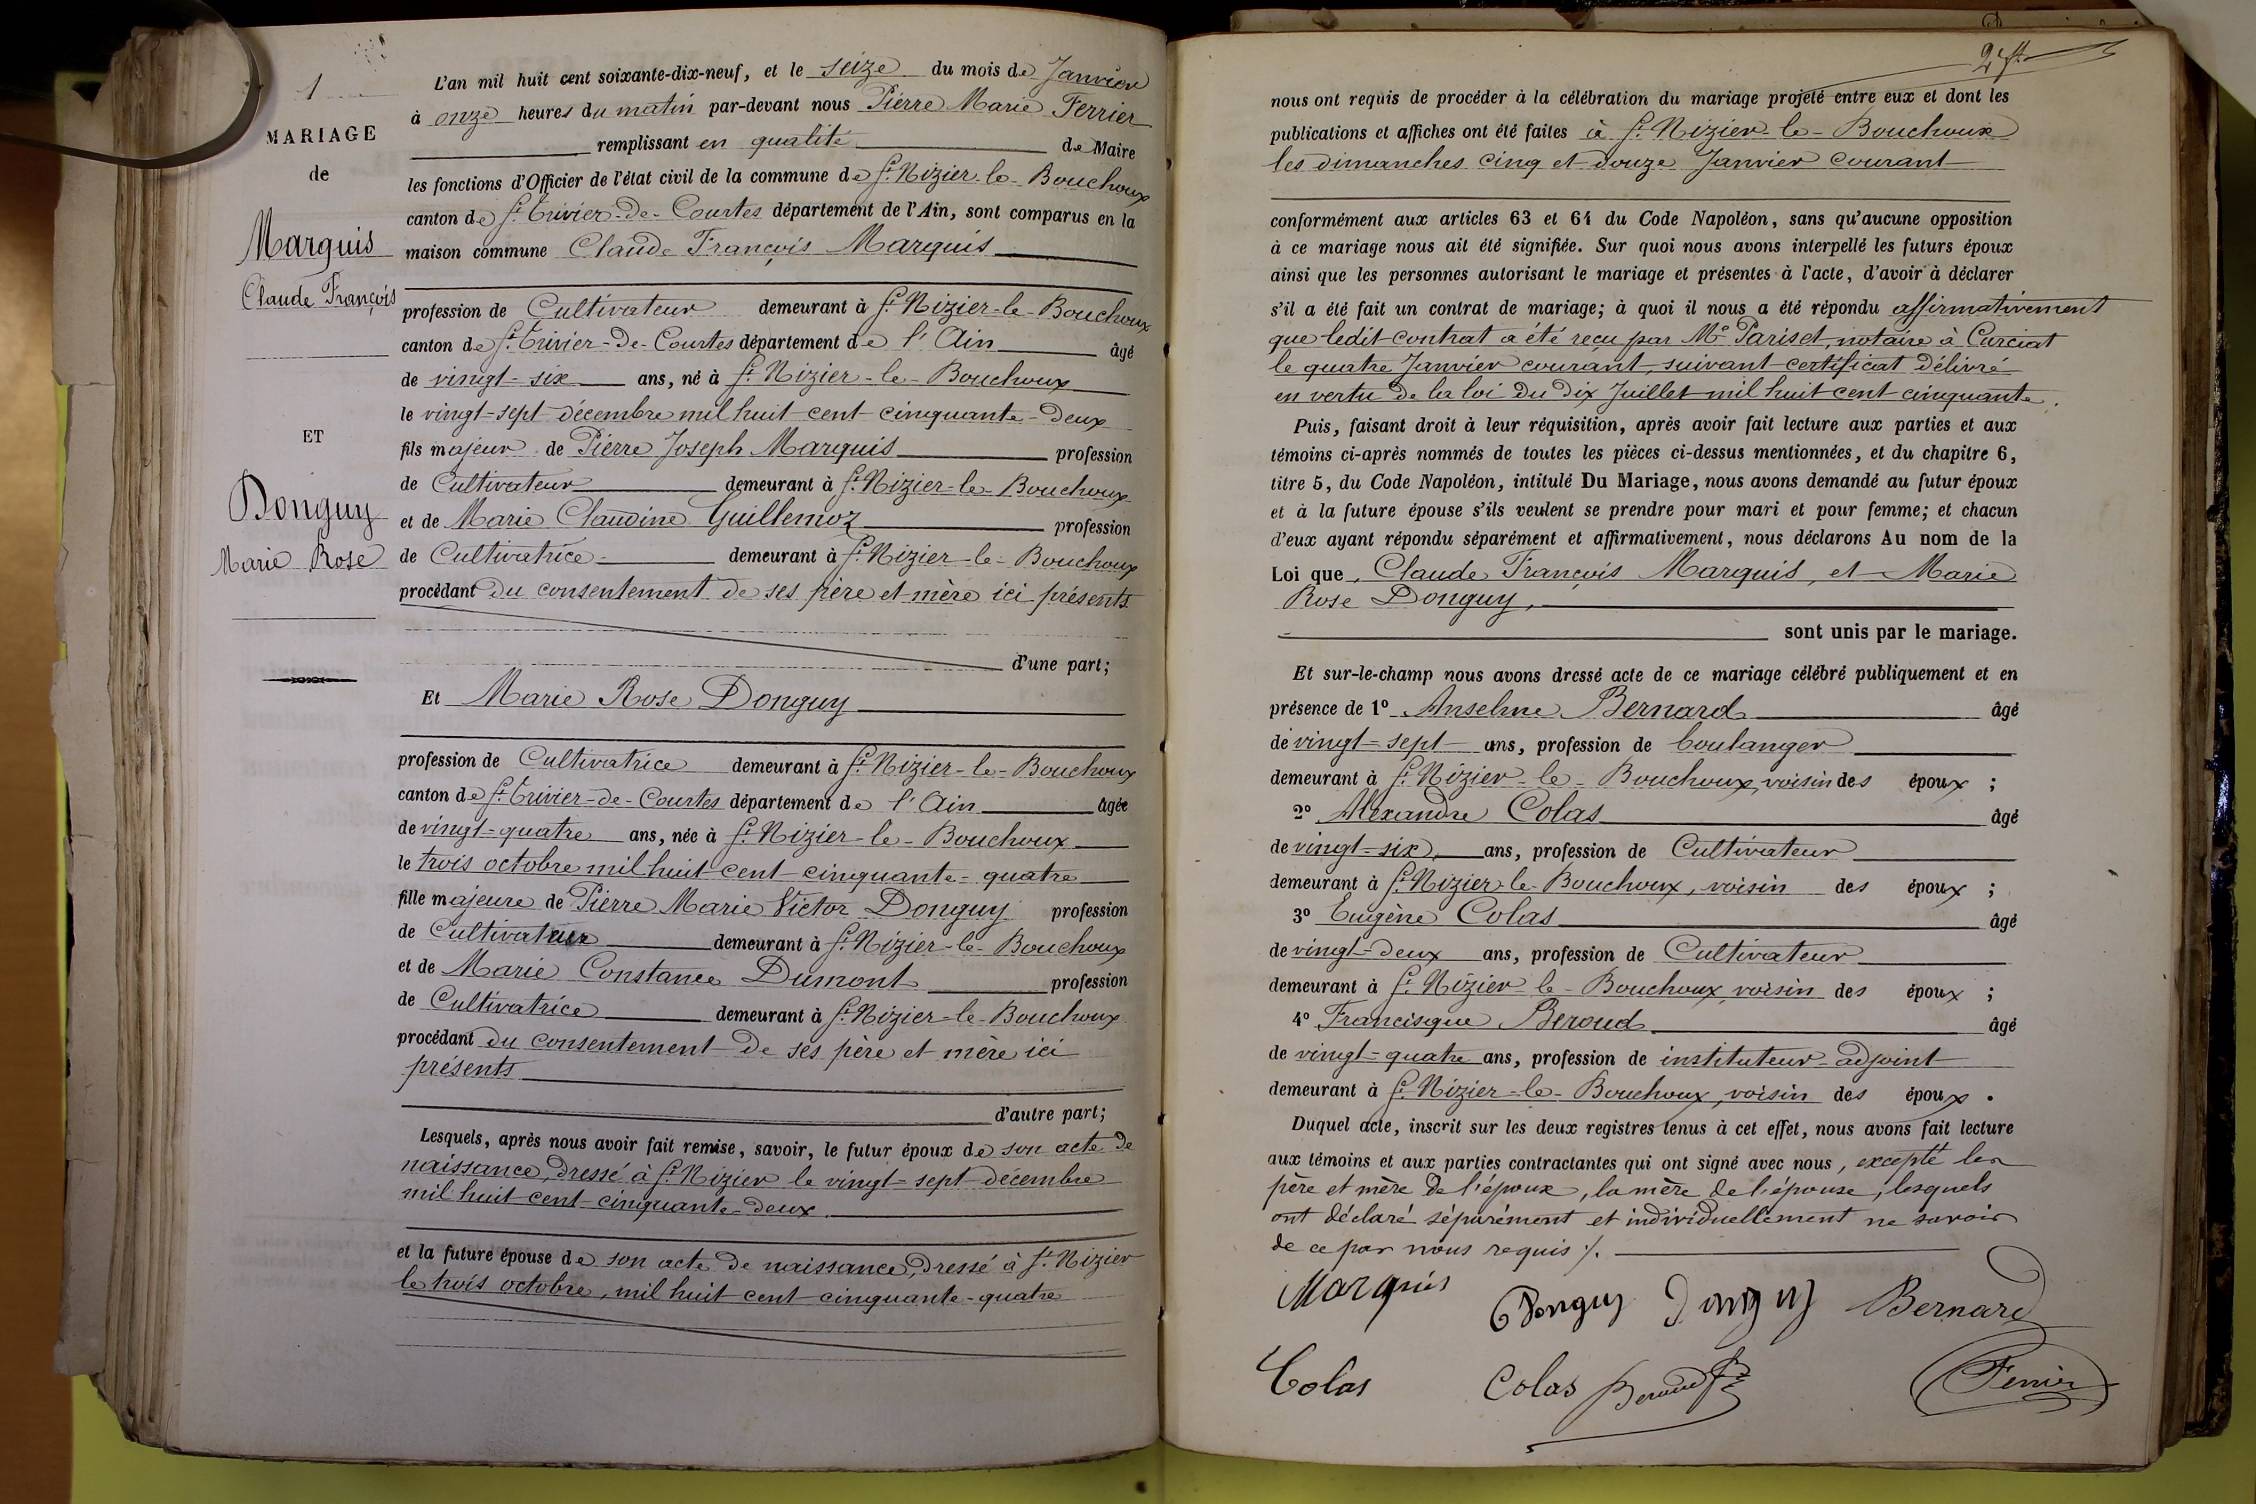 1
MARIAGE
de
Marquis
Claude François
ET
Donguy
Marie Rose
L'an mil huit cent soixante-dix-neuf, et le seize du mois de Janvier
à onze heures du matin par-devant nous Pierre Marie Ferrier
remplissant en qualité de Maire
les fonctions d'Officier de l'état civil de la commune de St Nizier-le-Bouchoux
canton de St Trivier-de-Courtes département de l'Ain, sont comparus en la
maison commune Claude François Marquis
profession de Cultivateur demeurant à St Nizier-le-Bouchoux
canton de St Trivier-de-Courtes département de l'Ain âgé
de vingt-six ans, né à St Nizier-le-Bouchoux
le vingt-sept décembre mil huit cent cinquante-deux
fils majeur de Pierre Joseph Marquis profession
de Cultivateur demeurant à St Nizier-le-Bouchoux
et de Marie Claudine Guillemoz profession
de Cultivatrice demeurant à St Nizier-le-Bouchoux
procédant du consentement de ses père et mère ici présents
d'une part;
Et Marie Rose Donguy
profession de Cultivatrice demeurant à St Nizier-le-Bouchoux
canton de St Trivier-de-Courtes département de l'Ain âgée
de vingt-quatre ans, née à St Nizier-le-Bouchoux
le trois octobre mil huit cent cinquante-quatre
fille majeure de Pierre Marie Victor Donguy profession
de Cultivateur demeurant à St Nizier-le-Bouchoux
et de Marie Constance Dumont profession
de Cultivatrice demeurant à St Nizier-le-Bouchoux
procédant du consentement de ses père et mère ici
présents
d'autre part;
Lesquels, après nous avoir fait remise, savoir, le futur époux de son acte de
naissance, dressé à St Nizier le vingt-sept décembre
mil huit cent cinquante-deux
et la future épouse de son acte de naissance, dressé à St Nizier
le trois octobre, mil huit cent cinquante-quatre
nous ont requis de procéder à la célébration du mariage projeté entre eux et dont les
publications et affiches ont été faites à St Nizier-le-Bouchoux
les dimanches cinq et douze Janvier courant
conformément aux articles 63 et 64 du Code Napoléon, sans qu'aucune opposition
à ce mariage nous ait été signifiée. Sur quoi nous avons interpellé les futurs époux
ainsi que les personnes autorisant le mariage et présentes à l'acte, d'avoir à déclarer
s'il a été fait un contrat de mariage; à quoi il nous a été répondu affirmativement
que ledit contrat a été reçu par Me Pariset, notaire à Curciat
le quatre Janvier courant, suivant certificat délivré
en vertu de la loi du dix Juillet mil huit cent cinquante.
Puis, faisant droit à leur réquisition, après avoir fait lecture aux parties et aux
témoins ci-après nommés de toutes les pièces ci-dessus mentionnées, et du chapitre 6,
titre 5, du Code Napoléon, intitulé Du Mariage, nous avons demandé au futur époux
et à la future épouse s'ils veulent se prendre pour mari et pour femme; et chacun
d'eux ayant répondu séparément et affirmativement, nous déclarons Au nom de la
Loi que, Claude François Marquis, et Marie
Rose Donguy,
sont unis par le mariage.
Et sur-le-champ nous avons dressé acte de ce mariage célébré publiquement et en
présence de 1º Anselme Bernard âgé
de vingt-sept ans, profession de boulanger
demeurant à St Nizier-le-Bouchoux, voisin des époux ;
2º Alexandre Colas âgé
de vingt-six ans, profession de Cultivateur
demeurant à St Nizier-le-Bouchoux, voisin des époux ;
3º Eugène Colas âgé
de vingt-deux ans, profession de Cultivateur
demeurant à St Nizier-le-Bouchoux, voisin des époux ;
4º Francisque Beroud âgé
de vingt-quatre ans, profession de instituteur-adjoint
demeurant à St Nizier-le-Bouchoux, voisin des époux .
Duquel acte, inscrit sur les deux registres tenus à cet effet, nous avons fait lecture
aux témoins et aux parties contractantes qui ont signé avec nous, excepté les
père et mère de l'époux, la mère de l'épouse, lesquels
ont déclaré séparément et individuellement ne savoir
de ce par nous requis ./.
Marquis Donguy Donguy Bernard
Colas Colas Beroud Ferrier